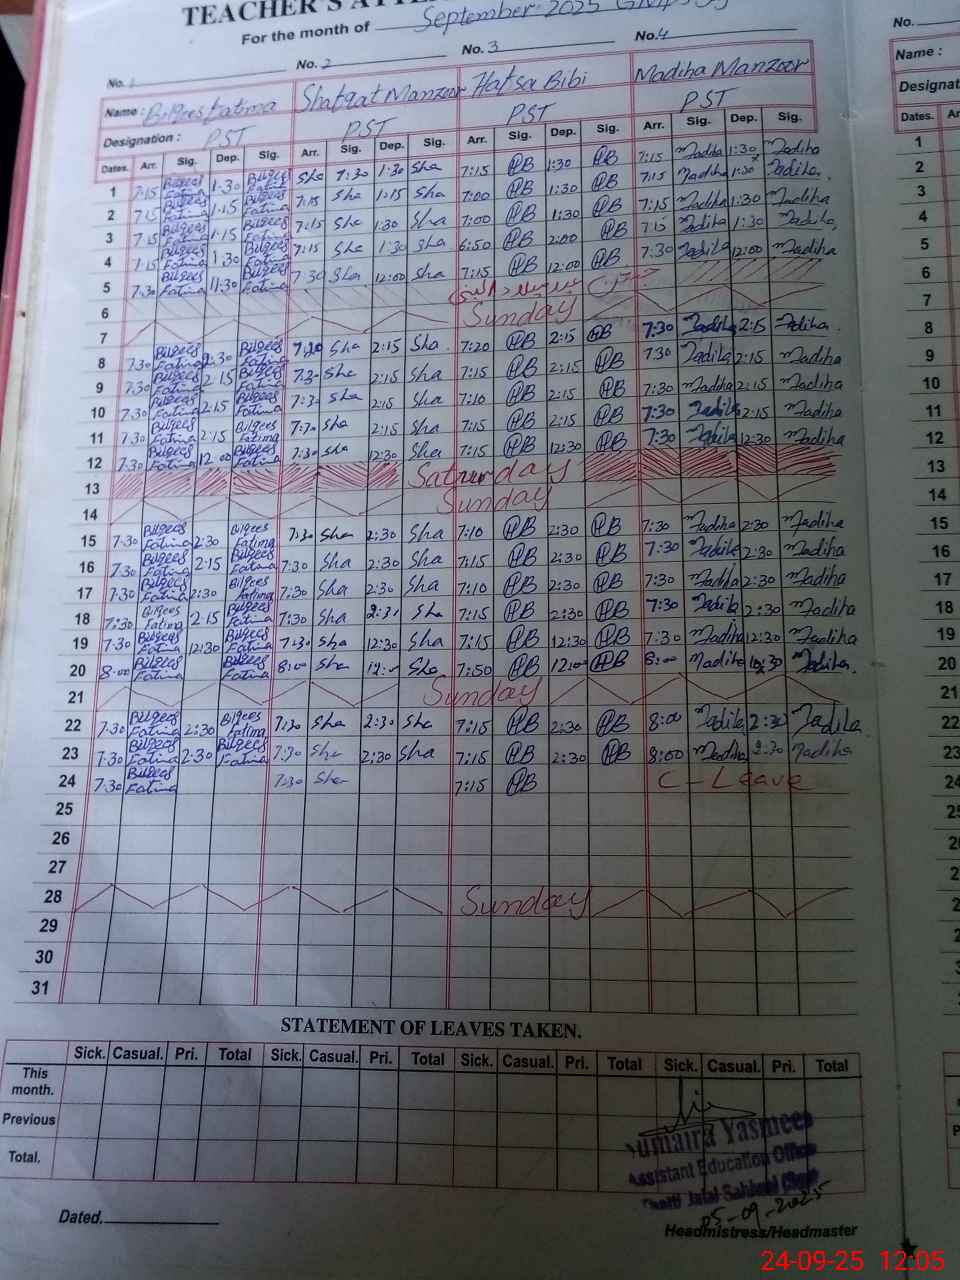 TEACHER'S
For the month of September 2025
No. 1 No. 2 No. 3 No. 4 No.
Name: Bilqees Fatima Shafqat Manzoor Hafsa Bibi Madiha Manzoor Name :
Designation : PST PST PST PST
Dates. Arr. Sig. Dep. Sig. Arr. Sig. Dep. Sig. Arr. Sig. Dep. Sig. Arr. Sig. Dep. Sig. Dates.
1 7:15 Bilqees Fatima 1:30 Bilqees Fatima Sha 7:30 1:30 Sha 7:15 HB 1:30 HB 7:15 Madiha 1:30 Madiha 1
2 7:15 Bilqees Fatima 1:15 Bilqees Fatima 7:15 Sha 1:15 Sha 7:00 HB 1:30 HB 7:15 Madiha 1:30 Madiha 2
3 7:15 Bilqees Fatima 1:15 Bilqees Fatima 7:15 Sha 1:30 Sha 7:00 HB 1:30 HB 7:15 Madiha 1:30 Madiha 3
4 7:15 Bilqees Fatima 1:30 Bilqees Fatima 7:15 Sha 1:30 Sha 6:50 HB 2:00 HB 7:15 Madiha 1:30 Madiha 4
5 7:30 Bilqees Fatima 11:30 Bilqees Fatima 7:30 Sha 12:00 Sha 7:15 HB 12:00 HB 7:30 Madiha 12:00 Madiha 5
6 6
7 Sunday 7
8 7:30 Bilqees Fatima 2:30 Bilqees Fatima 7:20 Sha 2:15 Sha 7:20 HB 2:15 HB 7:30 Madiha 2:15 Madiha 8
9 7:30 Bilqees Fatima 2:15 Bilqees Fatima 7:30 Sha 2:15 Sha 7:15 HB 2:15 HB 7:30 Madiha 2:15 Madiha 9
10 7:30 Bilqees Fatima 2:15 Bilqees Fatima 7:30 Sha 2:15 Sha 7:10 HB 2:15 HB 7:30 Madiha 2:15 Madiha 10
11 7:30 Bilqees Fatima 2:15 Bilqees Fatima Sha 2:15 Sha 7:15 HB 2:15 HB 7:30 Madiha 2:15 Madiha 11
12 7:30 Bilqees Fatima 12:00 Bilqees Fatima 7:30 Sha 12:30 Sha 7:15 HB 12:30 HB 7:30 Madiha 12:30 Madiha 12
13 Saturday 13
14 Sunday 14
15 7:30 Bilqees Fatima 2:30 Bilqees Fatima 7:30 Sha 2:30 Sha 7:10 HB 2:30 HB 7:30 Madiha 2:30 Madiha 15
16 7:30 Bilqees Fatima 2:15 Bilqees Fatima 7:30 Sha 2:30 Sha 7:15 HB 2:30 HB 7:30 Madiha 2:30 Madiha 16
17 7:30 Bilqees Fatima 2:30 Bilqees Fatima 7:30 Sha 2:30 Sha 7:10 HB 2:30 HB 7:30 Madiha 2:30 Madiha 17
18 7:30 Bilqees Fatima 2:15 Bilqees Fatima 7:30 Sha 2:31 Sha 7:15 HB 2:30 HB 7:30 Madiha 2:30 Madiha 18
19 7:30 Bilqees Fatima 12:30 Bilqees Fatima 7:30 Sha 12:30 Sha 7:15 HB 12:30 HB 7:30 Madiha 12:30 Madiha 19
20 8:00 Bilqees Fatima Bilqees Fatima 8:00 Sha Sha 7:50 HB 12:00 HB 8:00 Madiha Madiha 20
21 Sunday 21
22 7:30 Bilqees Fatima 2:30 Bilqees Fatima 7:30 Sha 2:30 Sha 7:15 HB 2:30 HB 8:00 Madiha 2:30 Madiha 22
23 7:30 Bilqees Fatima 2:30 Bilqees Fatima 7:30 Sha 2:30 Sha 7:15 HB 2:30 HB 8:00 Madiha 2:30 Madiha 23
24 7:30 Bilqees Fatima 7:30 Sha 7:15 HB C - Leave 24
25
26
27
28 Sunday
29
30
31
STATEMENT OF LEAVES TAKEN.
Sick. Casual. Pri. Total Sick. Casual. Pri. Total Sick. Casual. Pri. Total Sick. Casual. Pri. Total
This month.
Previous
Total.
umaira Yasmeen
Assistant Education Office
Jalal
05-09-2025
Dated.
Headmistress/Headmaster
24-09-25 12:05